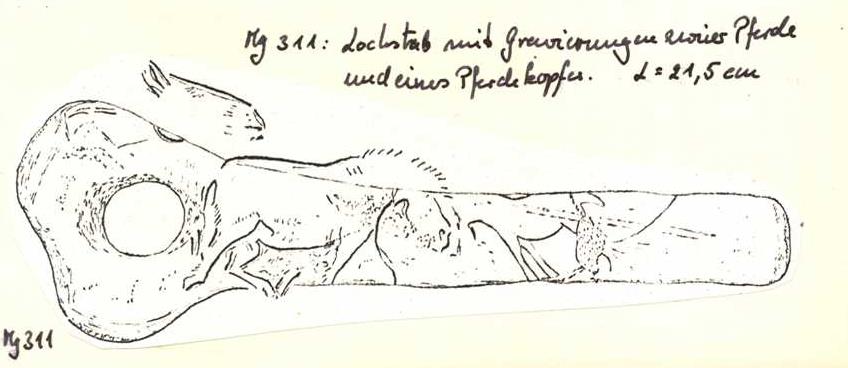 Mg 311: Lochstab mit Gravierungen zweier Pferde
und eines Pferdekopfes. L = 21,5 cm
Mg 311